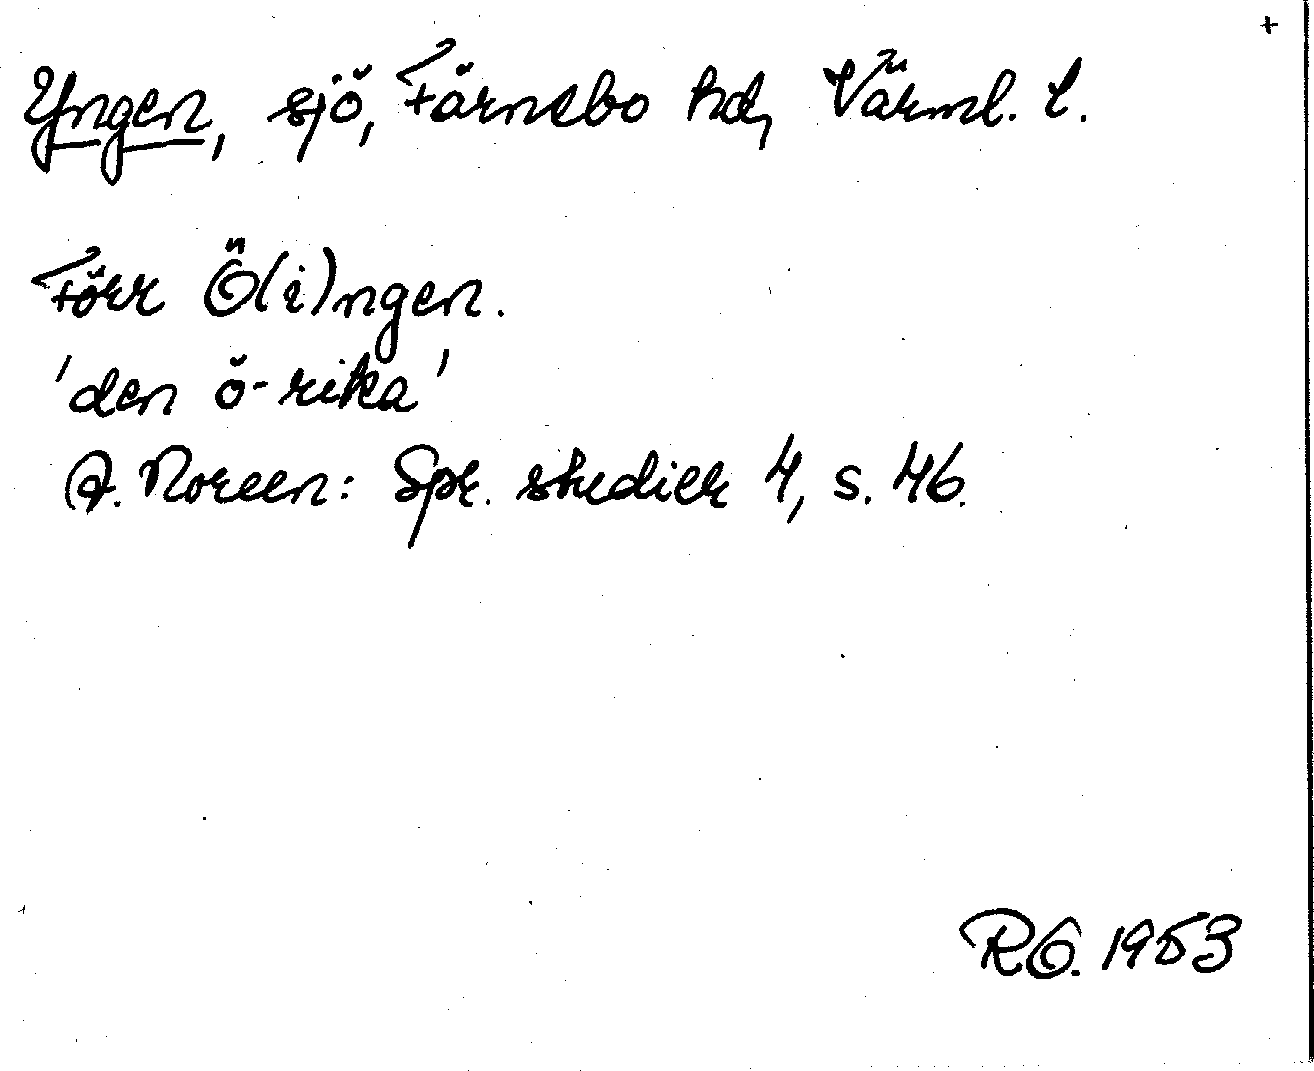 +
Yngen, sjö, Färnebo hd, Värml. l.
Förr Ö(i)ngen.
'den ö-rika'
A. Noreen: Spr. studier 4, s. 46.
RO. 1953